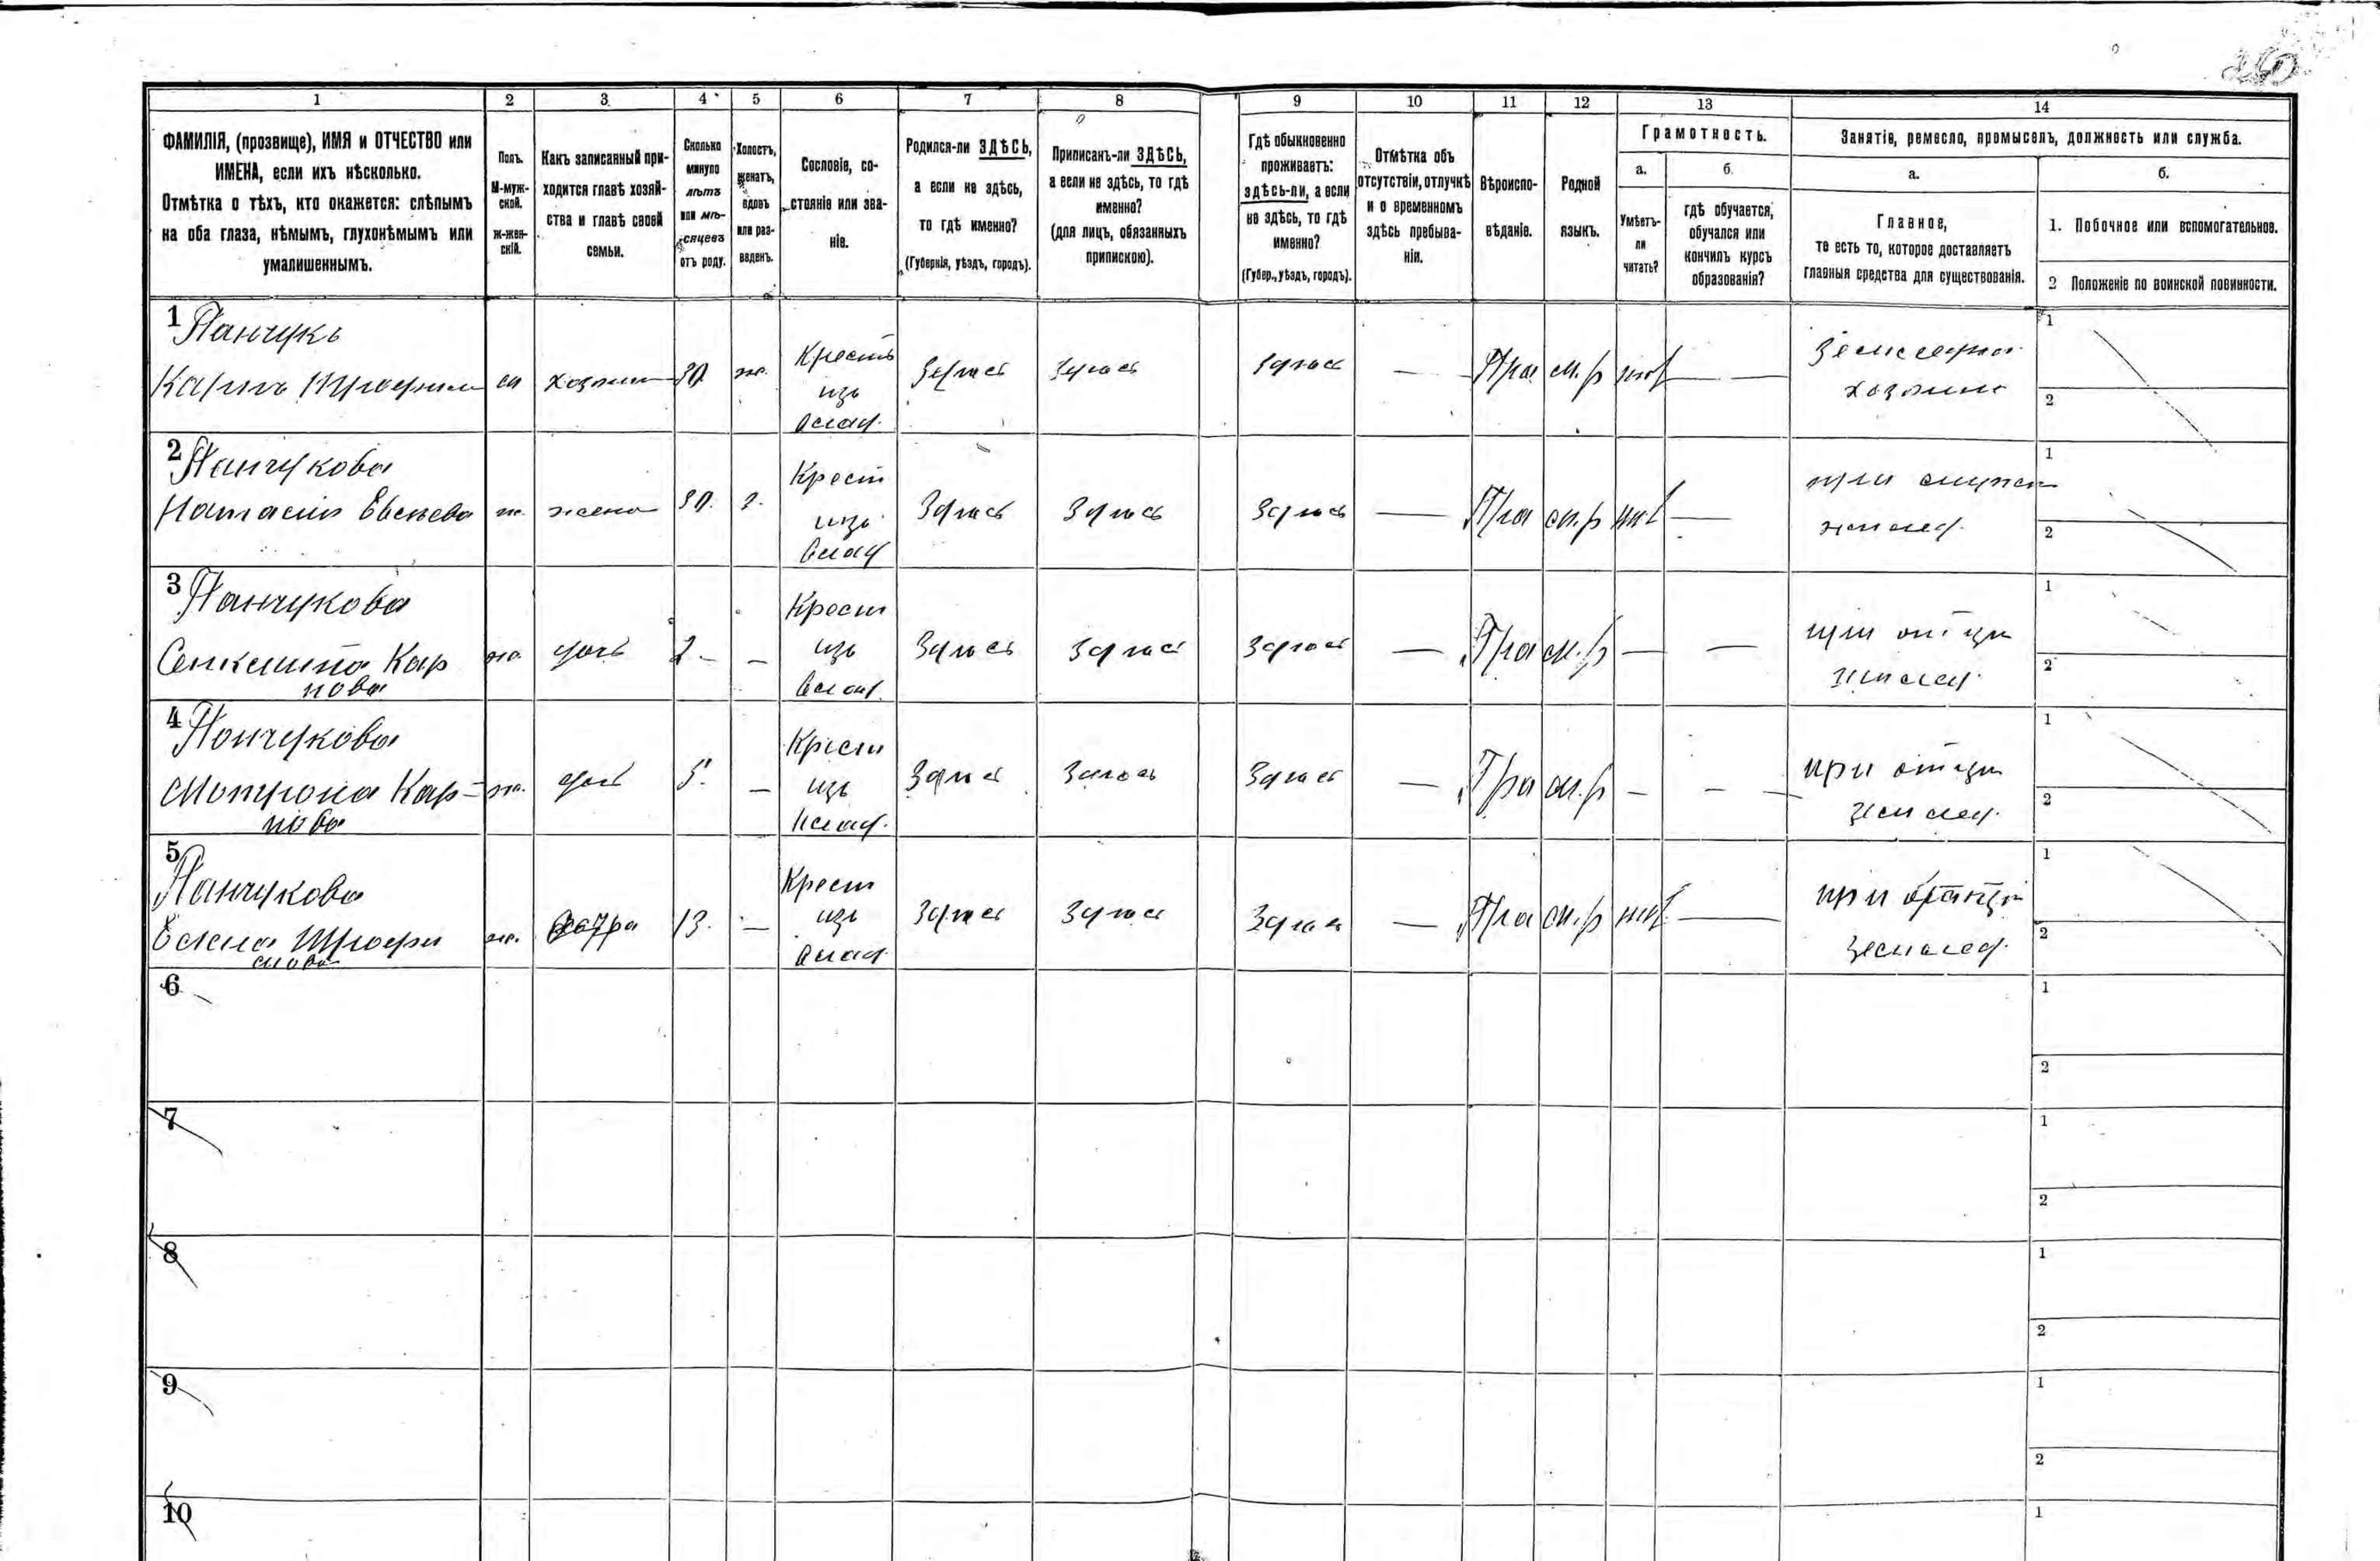 1 2 3 4 5 6 7 8 9 10 11 12 13 14
ФАМИЛІЯ, (прозвище), ИМЯ и ОТЧЕСТВО или
ИМЕНА, если ихъ нѣсколько.
Отмѣтка о тѣхъ, кто окажется: слѣпымъ
на оба глаза, нѣмымъ, глухонѣмымъ или
умалишеннымъ.
Полъ.
М-муж-
ской.
ж-жен-
скій.
Какъ записанный при-
ходится главѣ хозяй-
ства и главѣ своей
семьи.
Сколько
минуло
лѣтъ
или мѣ-
сяцевъ
отъ роду.
Холостъ,
женатъ,
вдовъ
или раз-
веденъ.
Сословіе, со-
стояніе или зва-
ніе.
Родился-ли ЗДѢСЬ,
а если не здѣсь,
то гдѣ именно?
(Губернія, уѣздъ, городъ).
Приписанъ-ли ЗДѢСЬ,
а если не здѣсь, то гдѣ
именно?
(для лицъ, обязанныхъ
припискою).
Гдѣ обыкновенно
проживаетъ:
здѣсь-ли, а если
не здѣсь, то гдѣ
именно?
(Губер., уѣздъ, городъ).
Отмѣтка объ
отсутствіи, отлучкѣ
и о временномъ
здѣсь пребыва-
ніи.
Вѣроиспо-
вѣданіе.
Родной
языкъ.
Грамотность.
а.
Умѣетъ-
ли
читать?
б.
гдѣ обучается,
обучался или
кончилъ курсъ
образованія?
Занятіе, ремесло, промыселъ, должность или служба.
а.
Главное,
то есть то, которое доставляетъ
главныя средства для существованія.
б.
1. Побочное или вспомогательное.
2 Положеніе по воинской повинности.
1 Панчукъ
Карпъ
м хозяинъ 30 ж. Крестъ
изъ
влад.
Здѣсь Здѣсь Здѣсь — Пра м.р нѣт —
Земледел
хозяинъ
1
2
2 Панчукова
ж. жена 30. З. Крест
изъ
влад
Здѣсь Здѣсь Здѣсь — Пра м.р нѣт —
при
землед.
1
2
3 Панчукова
Кар
пова
ж. дочь 2 - — Крест
изъ
влад.
Здѣсь Здѣсь Здѣсь — Пра м.р — —
при отцѣ
землед.
1
2
4 Панчукова
Мотрона Кар-
пова
ж. дочь 5. — Крест
изъ
влад.
Здѣсь Здѣсь Здѣсь — Пра м.р — —
при отцѣ
землед.
1
2
5 Панчукова
Елена
ж. 13. — Крест
изъ
влад.
Здѣсь Здѣсь Здѣсь — Пра м.р нѣт —
при
землед.
1
2
6
1
2
7
1
2
8
1
2
9
1
2
10
1